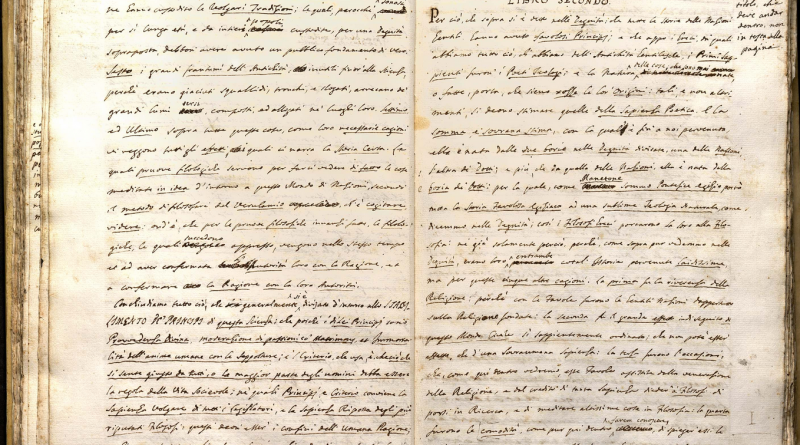 me hanno custodito le Volgari Tradizioni; le quali, perocchè
per sì lungo età, e da intieri popoli custodite, per una Dignità
sopraposta, debbon avere avuto un pubblico fondamento di vero.
i grandi frantumi dell'Antichità, inutili finor alla Scienza,
perchè erano giaciuti squallidi, tronchi, e slogati, arrecano de'
grandi lumi tersi, composti, ed allogati ne' luoghi loro. Settimo
ed Ultimo sopra tutte queste cose, come loro necessarie cagioni,
vi reggono tutti gli effetti, i quali ci narra la Storia Certa. Le
quali pruove filologiche servono per farci vedere di fatto le cose
meditate in idea d'intorno a questo Mondo di Nazioni, secondo
il metodo di filosofare del Verulamio, ch'è cogitare
videre: ond'è, che per le pruove filosofiche innanzi fatte, le filolo-
giche, le quali succedono appresso, vengono nello stesso tempo
et ad aver confermata loro con la Ragione, et
a confermare la Ragione con la loro Autorità.
Conchiudiamo tutto ciò, che generalmente si è divisato d'intorno allo STABI-
LIMENTO DE' PRINCIPJ di questa Scienza: che poichè i di lei Principj sono
Provvedenza Divina, moderazione di passioni co' Matrimonj, et Immorta-
lità dell'anime umane con le Sepolture; e 'l Criterio, che usa, è che ciò, che
si sente giusto da tutti, o la maggior parte degli uomini debba essere
la regola della Vita Socievole; ne' quali Principj, e Criterio conviene la
Sapienza Volgare di tutti i Legislatori, e la Sapienza Riposta degli più
riputati Filosofi; questi deon esser i confini dell'Umana Ragione;
LIBRO SECONDO.
Per ciò, che sopra si è detto nelle Dignità; che tutte le Storie delle Nazioni
Gentili hanno avuto favolosi Principj; e che appo i Greci, da' quali
abbiamo tutto ciò, ch'abbiamo dell'Antichità Gentilesche, i Primi Sap-
pienti furon i Poeti Teologi; e la Natura delle cose, che sono mai
o fatte, porta, che sieno rozze le lor Origini: tali, e non altri-
menti si deono stimare quelle della Sapienza Poetica. E la
somma e sovrana stima, con la quale è fin a noi pervenuta,
ella è nata dalle due borie nelle Dignità divisate, una delle Nazioni,
l'altra de' Dotti; e più che da quella delle Nazioni, ella è nata dalla
boria de' Dotti: per la quale, come Manetone Sommo Pontefice egizio portò
tutta la Storia Favolosa Egiziaca ad una sublime Teologia Naturale, come
dicemmo nelle Dignità; così i Filosofi Greci portarono la loro alla Filo-
sofia: nè già solamente perciò, perchè, come sopra pur vedemmo nelle
Dignità, erano loro entrambe cotal Istorie pervenute laidissime;
ma per queste cinque altre cagioni. La prima fu la riverenza della
Religione: perchè con le Favole furono le Gentili Nazioni dappertutto
sulla Religione fondate: la seconda fu il grande effetto indi seguìto di
questo Mondo Civile sì sappientemente ordinato, che non potè esser
effetto, che d'una Sovraumana Sapienza: la terza furono l'occasioni,
che, come qui dentro vedremo esse Favole assistite dalla venerazione
della Religione, e dal credito di tanta Sapienza diedero a' Filosofi, di
porsi in Ricerca, e di meditare altissime cose in Filosofia: la quarta
furono le comodità, come pur qui dentro farem conoscere, di spiegar essi le
titolo, che
deve andar
dentro, non
in testa alla
pagina